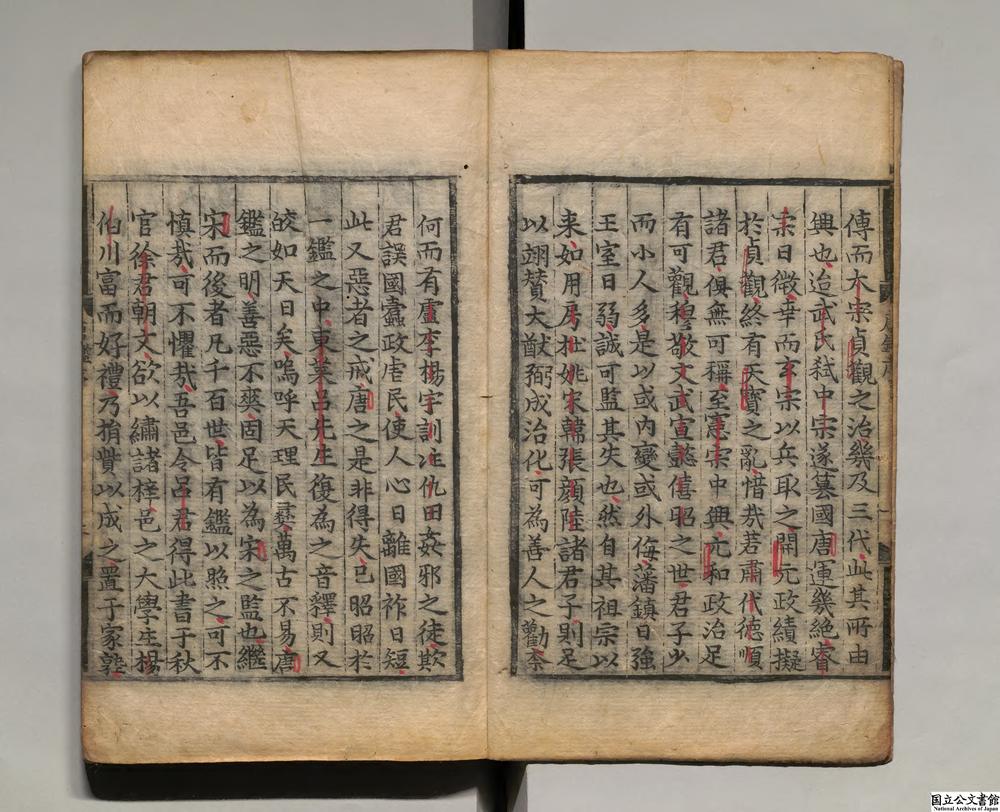 傳而太宗貞觀之治幾及三代此其所由
興也迨武氏弑中宗遂簒國唐運幾絶睿
宗日微幸而玄宗以兵取之開元政績擬
於貞觀終有天寶之亂惜哉若肅代德順
諸君俱無可稱至憲宗中興元和政治足
有可觀穆敬文武宣懿僖昭之世君子少
而小人多是以或內變或外侮藩鎮日強
王室日弱誠可監其失也然自其祖宗以
来如用房杜姚宋韓張顔陸諸君子則足
以翊賛大猷弼成治化可為善人之勸柰
何而有盧李楊宇訓注仇田姦邪之徒欺
君誤國蠹政虐民使人心日離國祚日短
此又惡者之戒唐之是非得失已昭昭於
一鑑之中東萊吕先生復為之音釋則又
皎如天日矣嗚呼天理民彜萬古不易唐
鑑之明善惡不爽固足以為宋之監也繼
宋而後者凡千百世皆有鑑以照之可不
慎哉可不懼哉吾邑令吕君得此書于秋
官徐君朝文欲以繡諸梓邑之大學生楊
伯川富而好禮乃捐貲以成之置于家塾
国立公文書館
National Archives of Japan